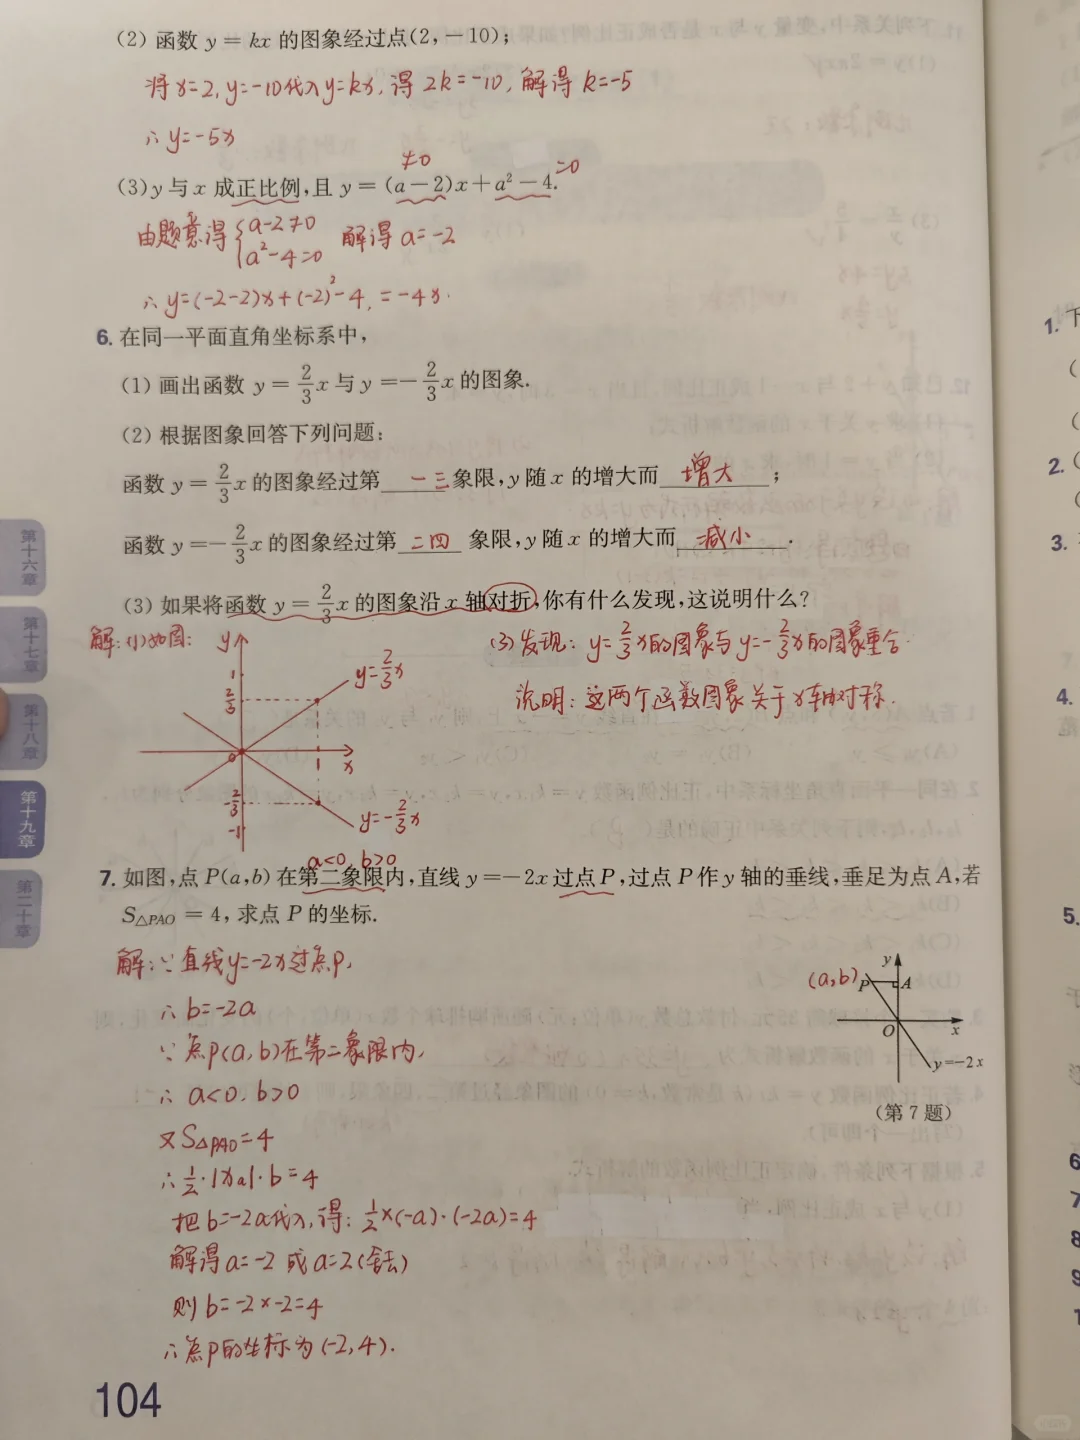 (2) 函数 y = kx 的图象经过点(2,-10);
将x=2,y=-10代入y=kx,得 2k=-10, 解得 k=-5
∴ y=-5x
≠0 =0
(3) y 与 x 成正比例,且 y = (a-2)x + a² - 4.
由题意得 {a-2≠0 解得 a=-2
a²-4=0
∴ y=(-2-2)x+(-2)²-4, =-4x.
6. 在同一平面直角坐标系中,
(1) 画出函数 y = 2/3 x 与 y = -2/3 x 的图象.
(2) 根据图象回答下列问题:
函数 y = 2/3 x 的图象经过第 一三 象限, y 随 x 的增大而 增大 ;
函数 y = -2/3 x 的图象经过第 二四 象限, y 随 x 的增大而 减小 .
(3) 如果将函数 y = 2/3 x 的图象沿 x 轴对折,你有什么发现,这说明什么?
解:(1)如图:
y
1
2/3
0
1
x
-2/3
-1
y=2/3x
y=-2/3x
(3)发现: y=2/3x的图象与y=-2/3x的图象重合.
说明: 这两个函数图象关于x轴对称.
a<0, b>0
7. 如图,点 P(a,b) 在第二象限内,直线 y=-2x 过点 P,过点 P 作 y 轴的垂线,垂足为点 A,若
S△PAO = 4,求点 P 的坐标.
解:∵直线y=-2x过点P,
∴ b=-2a
∵ 点P(a,b)在第二象限内,
∴ a<0, b>0
又S△PAO=4
∴ 1/2·|xa|·b=4
把b=-2a代入,得: 1/2×(-a)·(-2a)=4
解得a=-2 或a=2(舍去)
则 b=-2×-2=4
∴点P的坐标为(-2,4).
(a,b)
y
P
A
O
x
y=-2x
(第 7 题)
104
第十六章
第十七章
第十八章
第十九章
第二十章
1. 下
2.
3.
4.
5.
6
7
8
9
1